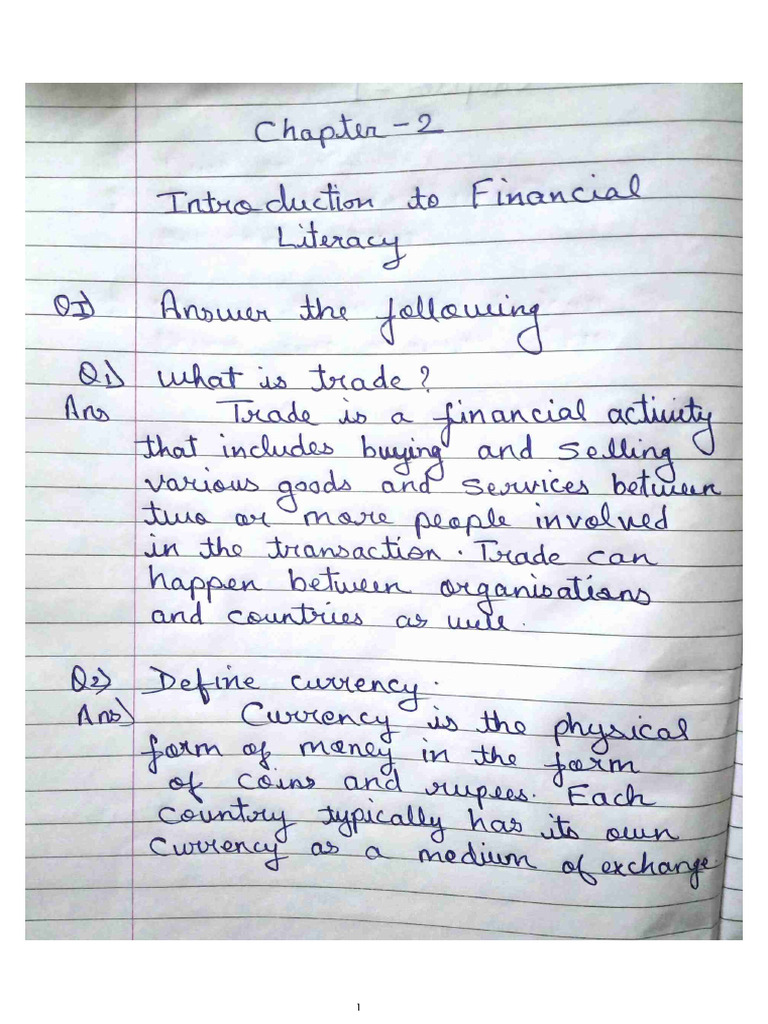 Chapter - 2
Introduction to Financial
Literacy
QI) Answer the following
Q1) What is trade?
Ans Trade is a financial activity
that includes buying and selling
various goods and services between
two or more people involved
in the transaction. Trade can
happen between organisations
and countries as well.
Q2) Define currency.
Ans) Currency is the physical
form of money in the form
of coins and rupees. Each
country typically has its own
currency as a medium of exchange.
1